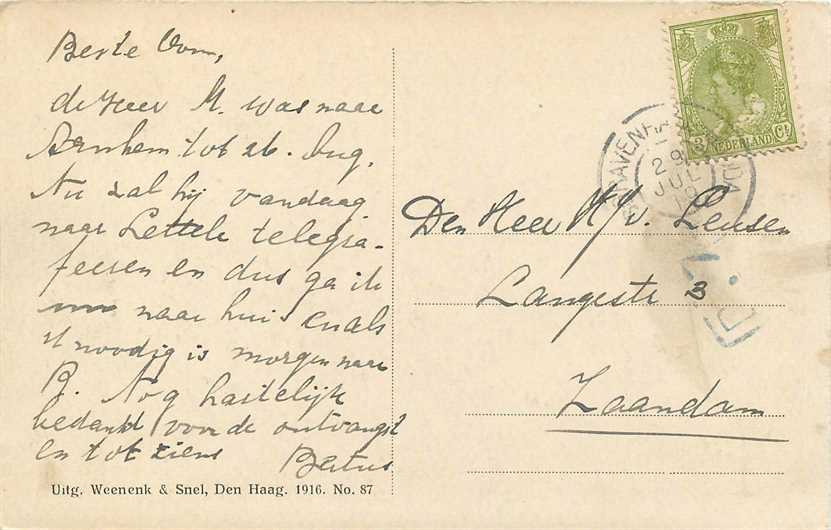 Beste Oom,
de Heer M. was naar
Arnhem tot 26. Aug.
Nu zal hij vandaag
naar telegra-
feeren en dus ga ik
naar huis en als
't noodig is morgen naar
B. Nog hartelijk
bedankt voor de ontvangst
en tot ziens Bertus
Uitg. Weenenk & Snel, Den Haag. 1916. No. 87
3 Ct
NEDERLAND
29
JUL
Den Heer v. Leusen
Langestr 3
Zaandam